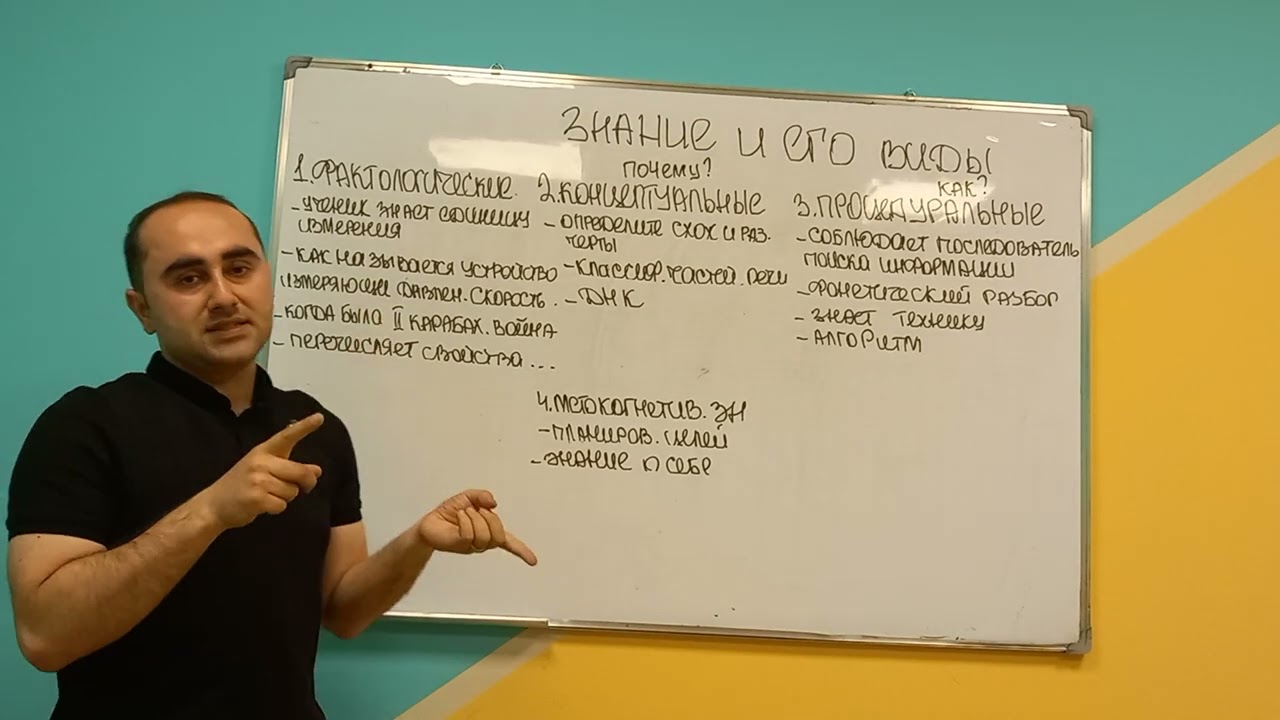 ЗНАНИЕ И ЕГО ВИДЫ
1. ФАКТОЛОГИЧЕСКИЕ
- УЧЕНИК ЗНАЕТ ЕДИНИЦУ
ИЗМЕРЕНИЯ
- КАК НАЗЫВАЕТСЯ УСТРОЙСТВО
ИЗМЕРЯЮЩЕЕ ДАВЛЕН. СКОРОСТЬ.
- КОГДА БЫЛА II КАРАБАХ. ВОЙНА
- ПЕРЕЧИСЛЯЕТ СВОЙСТВА ...
ПОЧЕМУ?
2. КОНЦЕПТУАЛЬНЫЕ
- ОПРЕДЕЛИТЕ СХОЖ И РАЗ.
ЧЕРТЫ
- КЛАССИФ. ЧАСТЕЙ. РЕЧИ
- ДНК
КАК?
3. ПРОЦЕДУРАЛЬНЫЕ
- СОБЛЮДАЕТ ПОСЛЕДОВАТЕЛЬ
ПОИСКА ИНФОРМАЦИИ
- ФОНЕТИЧЕСКИЙ РАЗБОР
- ЗНАЕТ ТЕХНИКУ
- АЛГОРИТМ
4. МЕТОКОГНЕТИВ. ЗН
- ПЛАНИРОВ. ЦЕЛЕЙ
- ЗНАНИЕ О СЕБЕ